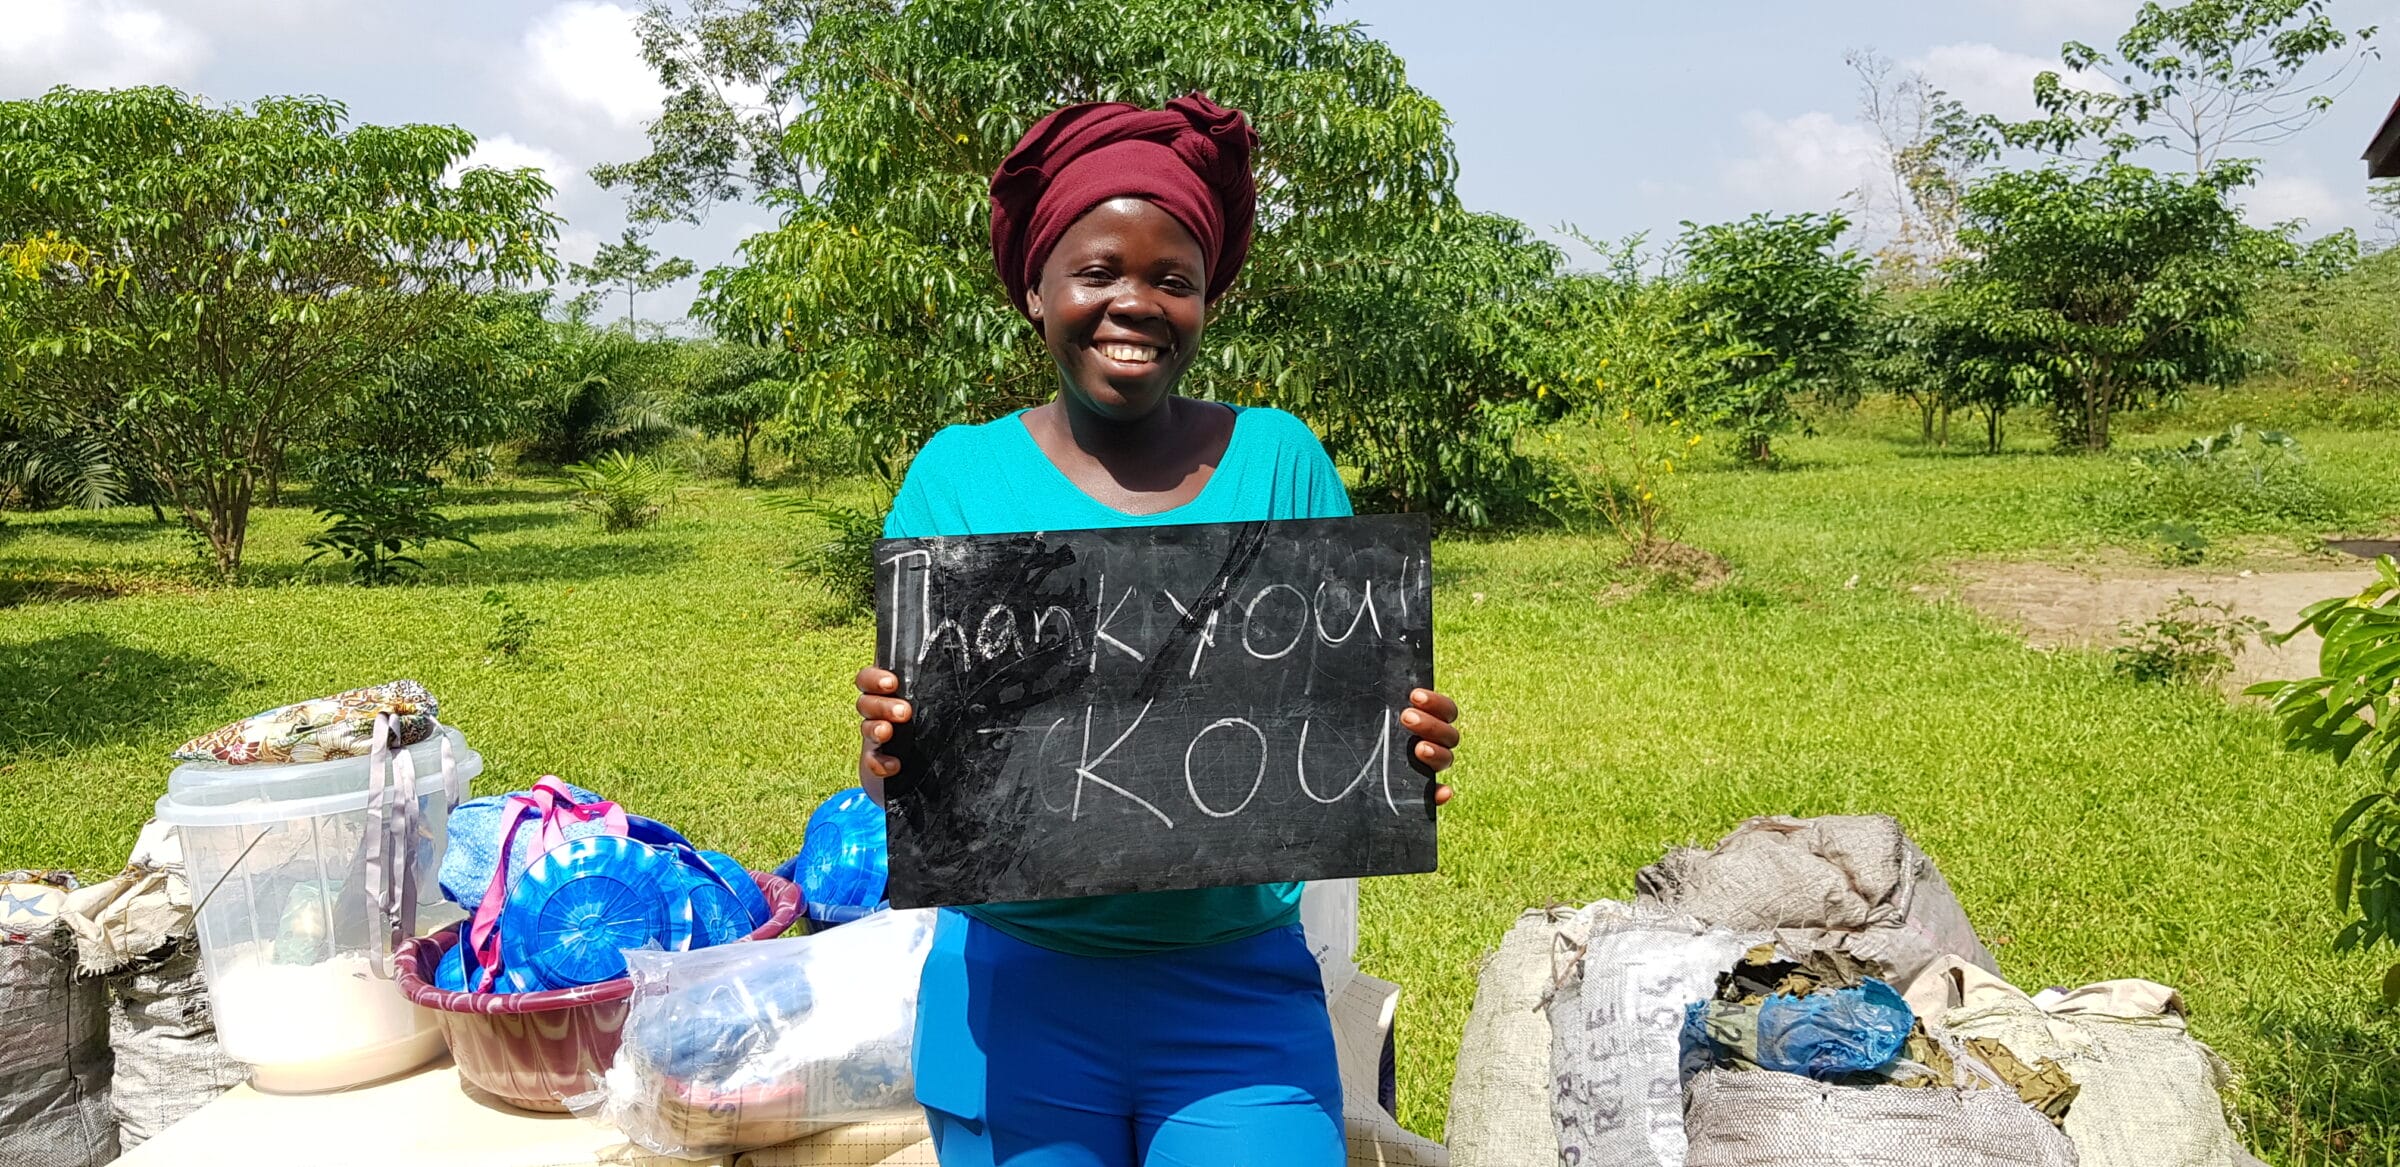 Thank you!!
KOU